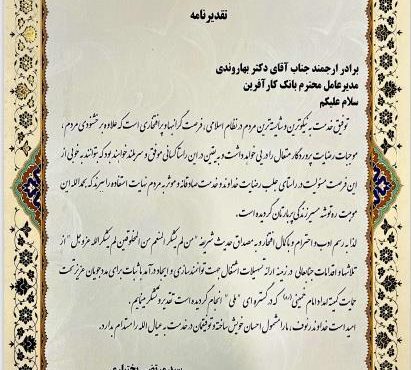 تقدیرنامه
برادر ارجمند جناب آقای دکتر بهاروندی
مدیرعامل محترم بانک کارآفرین
سلام علیکم
توفیق خدمت به نیکوترین و شایسته‌ترین مردم در نظام اسلامی، فرصت گرانبها و پرافتخاری است که علاوه بر خشنودی مردم،
موجبات رضایت پروردگار متعال را در پی خواهد داشت و به یقین در این راستا کسانی موفق و سربلند خواهند بود که بتوانند به خوبی از
این فرصت مسئولیت در راستای جلب رضایت خداوند و خدمت صادقانه و موثر به مردم نهایت استفاده را ببرند که بحمدالله این
موهبت ره‌توشه مسیر زندگی پربارتان گردیده است.
لذا به رسم ادب و احترام و با کمال افتخار و به مصداق حدیث شریفه "من لم یشکر المنعم من المخلوقین لم یشکر الله عزوجل" از
تلاشها و اقدامات جنابعالی در زمینه ارائه تسهیلات اشتغال جهت توانمندسازی و ایجاد درآمد با ثبات برای مددجویان عزیز تحت
حمایت کمیته امداد امام خمینی (ره) که در گستره‌ای "ملی" انجام گردیده است تقدیر و تشکر می‌نمایم.
امید است خداوند رئوف، ما را مشمول احسان خویش ساخته و توفیقمان در خدمت به عیال الله را مستدام بدارد.
سید مرتضی بختیاری